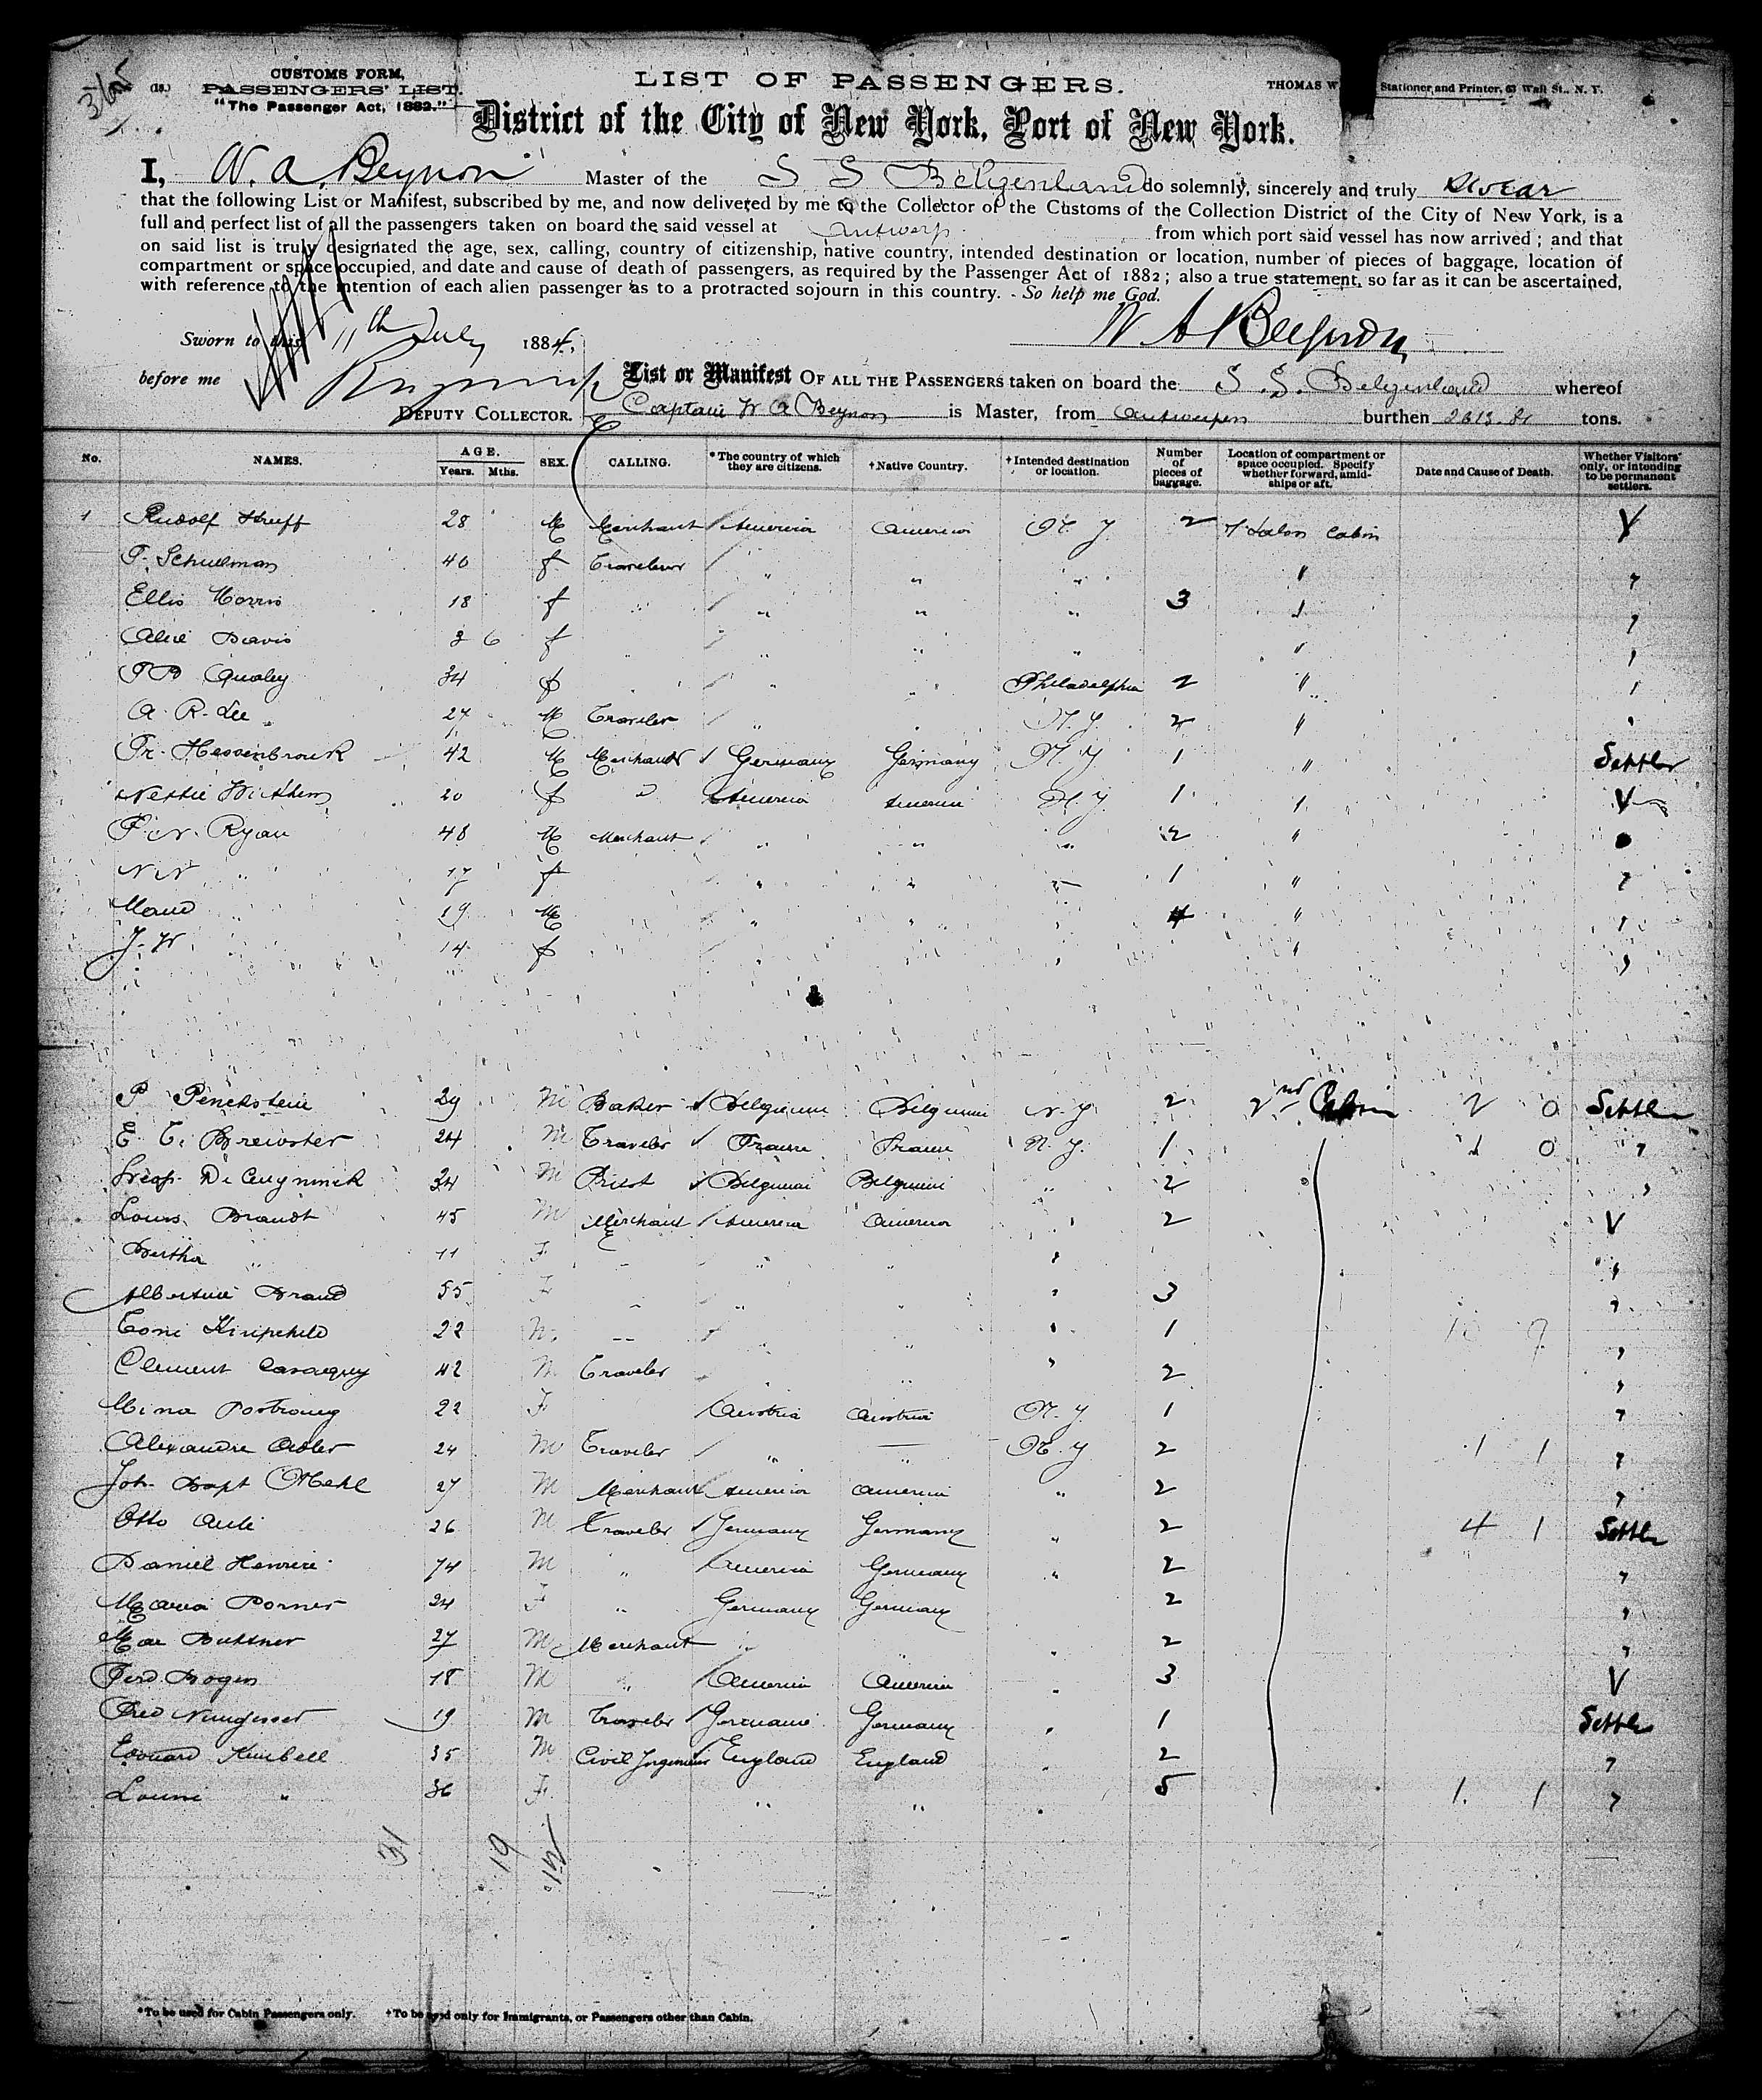 3165
(18.) CUSTOMS FORM, PASSENGERS' LIST. "The Passenger Act, 1882."
LIST OF PASSENGERS.
THOMAS W. Stationer and Printer, 63 Wall St., N. Y.
District of the City of New York, Port of New York.
I, W. A. Beynon Master of the S S Belgenland do solemnly, sincerely and truly swear
that the following List or Manifest, subscribed by me, and now delivered by me to the Collector of the Customs of the Collection District of the City of New York, is a
full and perfect list of all the passengers taken on board the said vessel at Antwerp from which port said vessel has now arrived; and that
on said list is truly designated the age, sex, calling, country of citizenship, native country, intended destination or location, number of pieces of baggage, location of
compartment or space occupied, and date and cause of death of passengers, as required by the Passenger Act of 1882; also a true statement, so far as it can be ascertained,
with reference to the intention of each alien passenger as to a protracted sojourn in this country. So help me God.
Sworn to this 11th July 1884, W A Beynon
before me List or Manifest OF ALL THE PASSENGERS taken on board the S. S. Belgenland whereof
DEPUTY COLLECTOR. Captain W A Beynon is Master, from Antwerpen burthen tons.
No. NAMES. AGE. Years. Mths. SEX. CALLING. *The country of which they are citizens. †Native Country. †Intended destination or location. Number of pieces of baggage. Location of compartment or space occupied. Specify whether forward, amidships or aft. Date and Cause of Death. Whether Visitors only, or intending to be permanent settlers.
1 Rudolf Struff 28 M Merchant America America N. Y. 2 Salon Cabin V
P. Schulman 40 f " " " " "
Ellis Morris 18 f " " " 3 " "
Alice Davis 6 f " " " " " "
Qualey 34 f " " Philadelphia 2 " "
A. R. Lee 27 M Traveler " N. Y. 2 " "
Fr. Hessenbrouk 42 M Merchant Germany Germany N. Y 1 " Settler
Nettie 20 f " America America N. Y 1 " V
Ryan 48 M Merchant " " " 2 "
N N " 17 f " " " 1 " "
Maud " 19 M " " " 4 " "
J. W " 14 f " " " " "
P Penckstein 29 M Baker Belgium Belgium N. Y. 2 2nd Cabin 2 0 Settler
E. C. Brewster 24 M Traveler France France N. Y. 1 1 0 "
De Cuyninck 34 M Priest Belgium Belgium " 2 "
Louis Brandt 45 M Merchant America America " 2 V
Bertha " 11 F " " " " "
Albertine Brand 55 F " " " " 3 "
Toni 22 " " " " 1 10 9 "
Clement 42 M Traveler " " " 2 "
Mina 22 F Austria Austria N. Y. 1 "
Alexandre Adler 24 M Traveler " " N. Y 2 1 1 "
Joh. Bapt Mehl 27 M Merchant America America " 2 "
Otto 26 M Traveler Germany Germany " 2 4 1 Settler
Daniel Henrici 74 M " America Germany " 2 "
Maria Porner 24 F " Germany Germany 2 "
Max Buttner 27 M Merchant " " 2 "
Ferd. Bogen 18 M " America America " 3 V
19 M Traveler Germanie Germany " 1 Settler
Edouard Kimbell 35 M Civil Ingenieur England England " 2 "
Louise " 36 F " " " 5 1 1 "
31 19 12
*To be used for Cabin Passengers only. †To be used only for Immigrants, or Passengers other than Cabin.